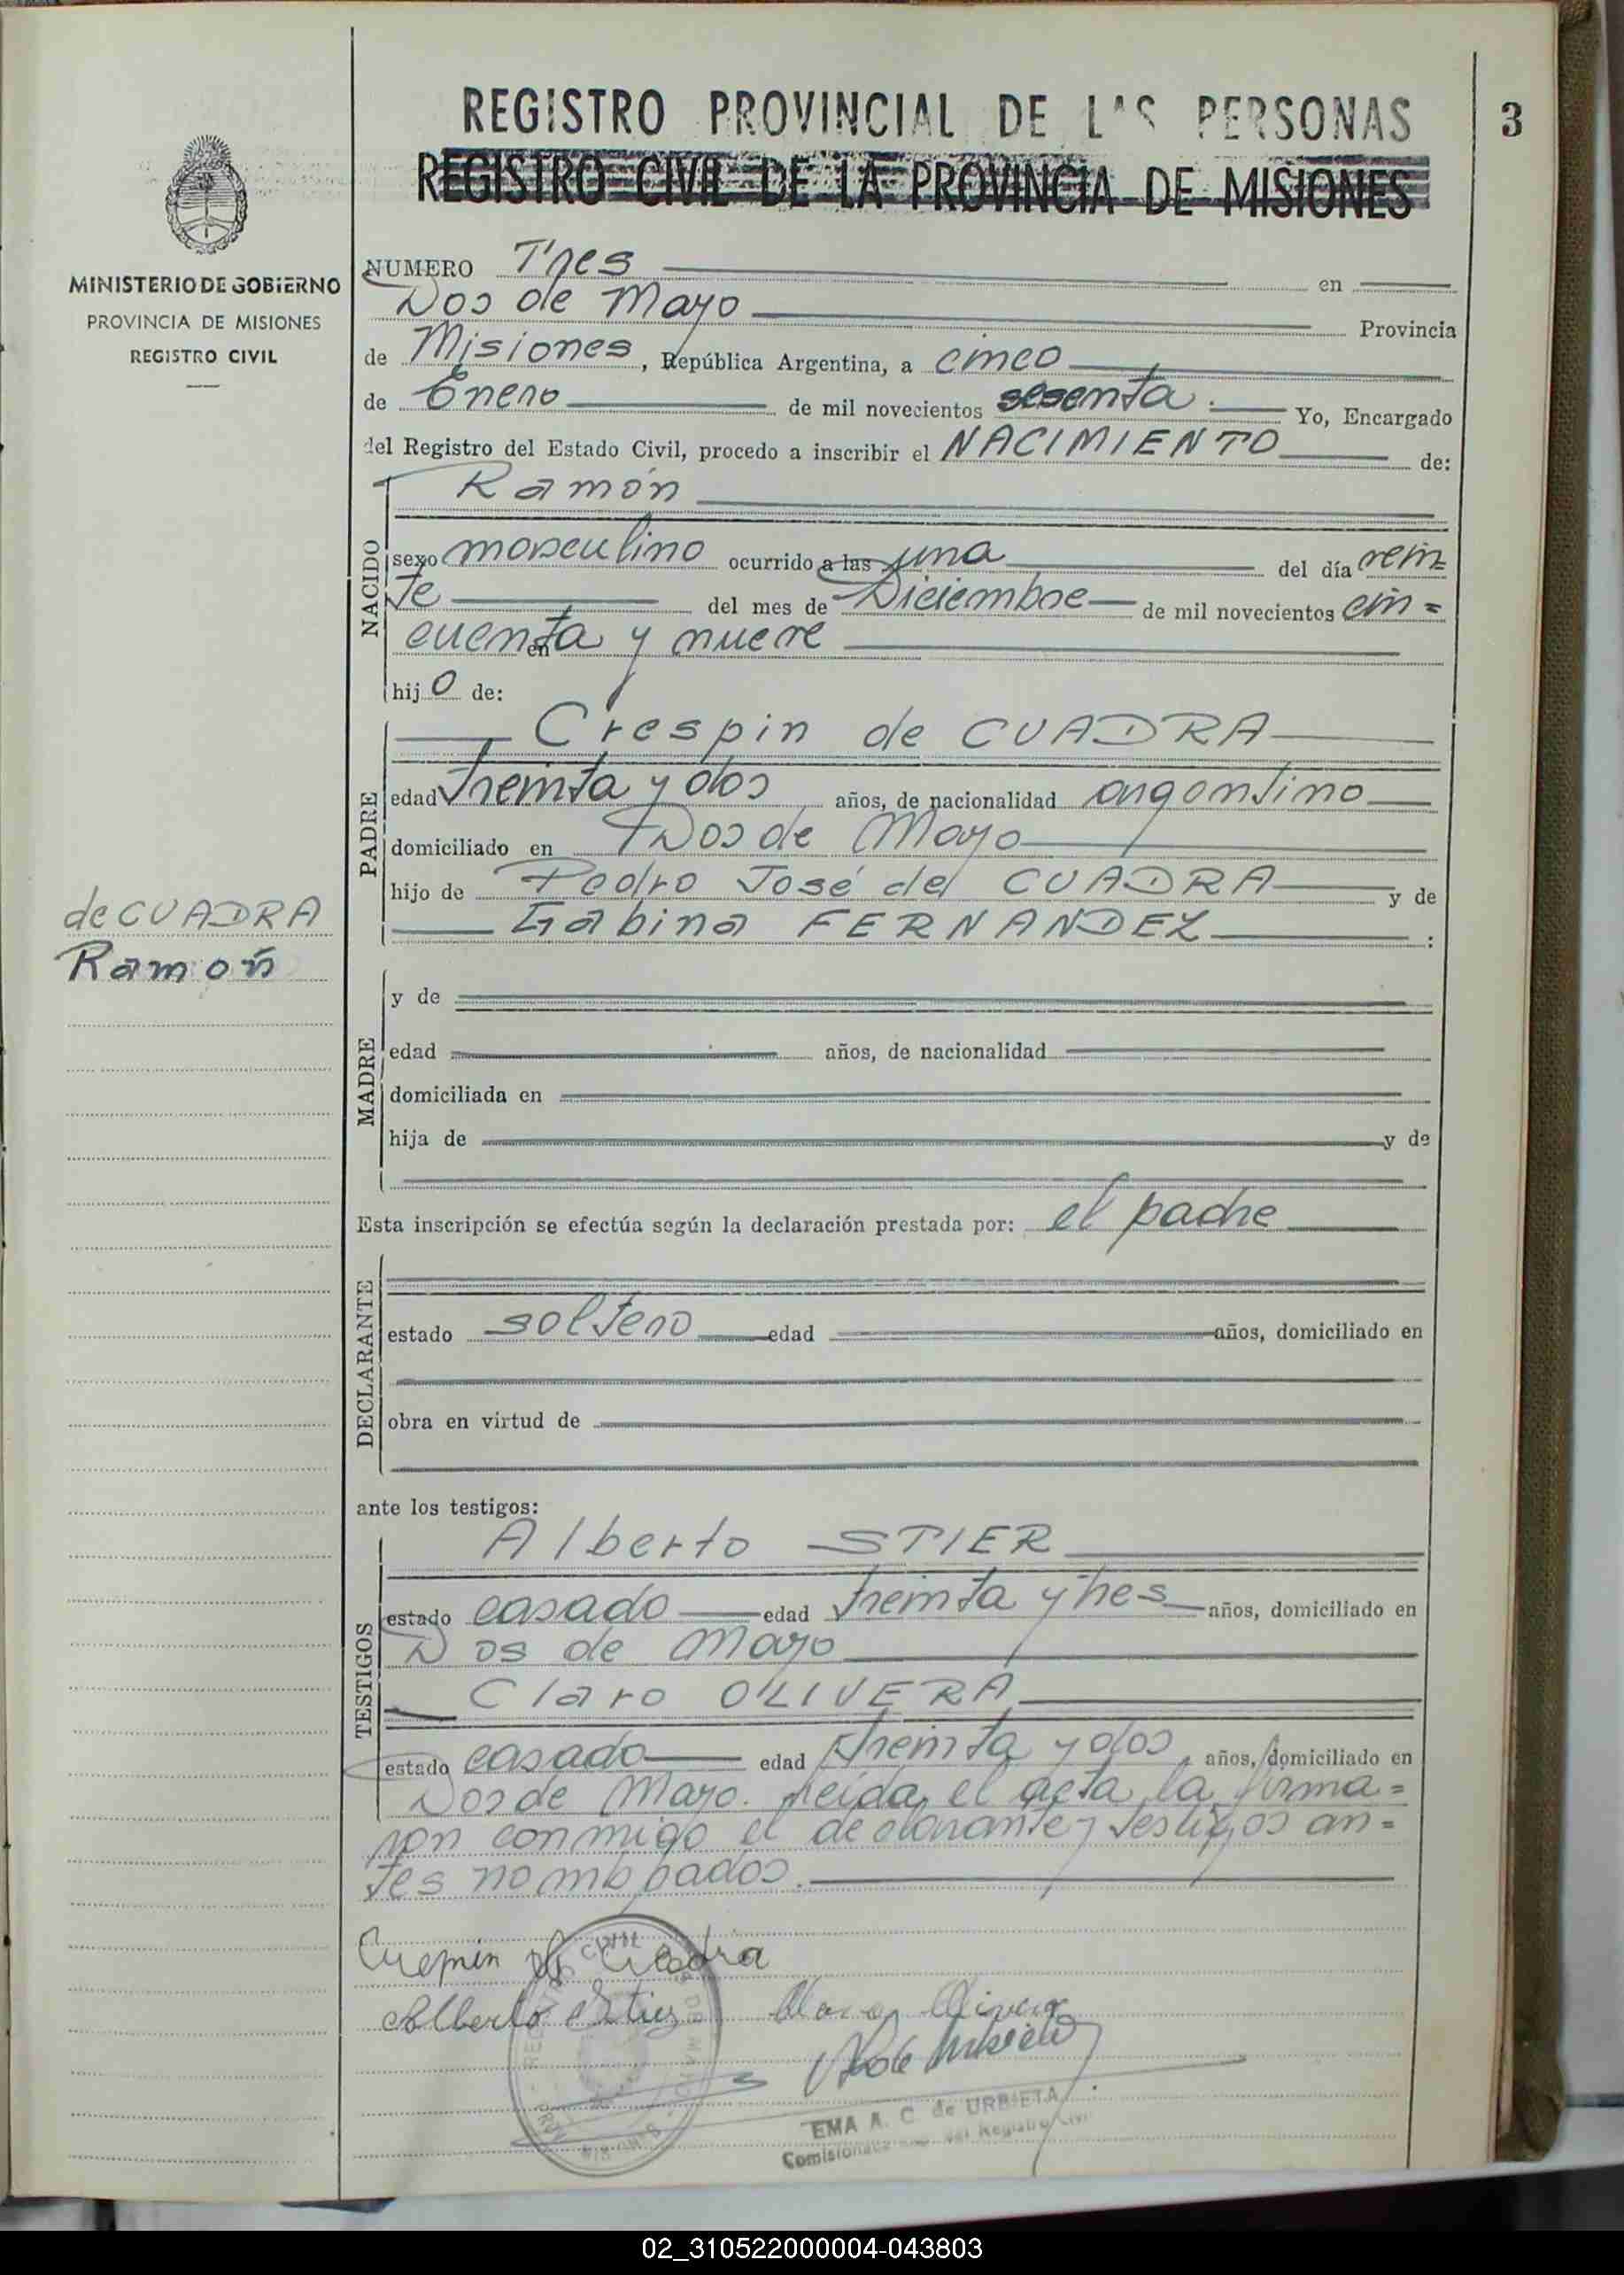 REGISTRO PROVINCIAL DE LAS PERSONAS
3
REGISTRO CIVIL DE LA PROVINCIA DE MISIONES
MINISTERIO DE GOBIERNO
PROVINCIA DE MISIONES
REGISTRO CIVIL
NUMERO Tres en
Dos de Mayo Provincia
de Misiones, República Argentina, a cinco
de Enero de mil novecientos sesenta. Yo, Encargado
del Registro del Estado Civil, procedo a inscribir el NACIMIENTO de:
Ramón
NACIDO
sexo masculino ocurrido a las una del día vein=
te del mes de Diciembre de mil novecientos cin=
cuenta y nueve
en
hijo de:
PADRE
Crespin de CUADRA
edad treinta y dos años, de nacionalidad argentino
domiciliado en Dos de Mayo
hijo de Pedro José de CUADRA y de
Gabina FERNANDEZ :
de CUADRA
Ramón
MADRE
y de
edad años, de nacionalidad
domiciliada en
hija de y de
Esta inscripción se efectúa según la declaración prestada por: el padre
DECLARANTE
estado soltero edad años, domiciliado en
obra en virtud de
ante los testigos:
TESTIGOS
Alberto STIER
estado casado edad treinta y tres años, domiciliado en
Dos de Mayo
Claro OLIVERA
estado casado edad treinta y dos, años, domiciliado en
Dos de Mayo. Leída el acta la firma=
ron conmigo el declarante y testigos an=
tes nombrados.
Crespin de Cuadra
Alberto Stier Claro Olivera
EMA A. C. de URBIETA
del Registro Civil
02_310522000004-043803